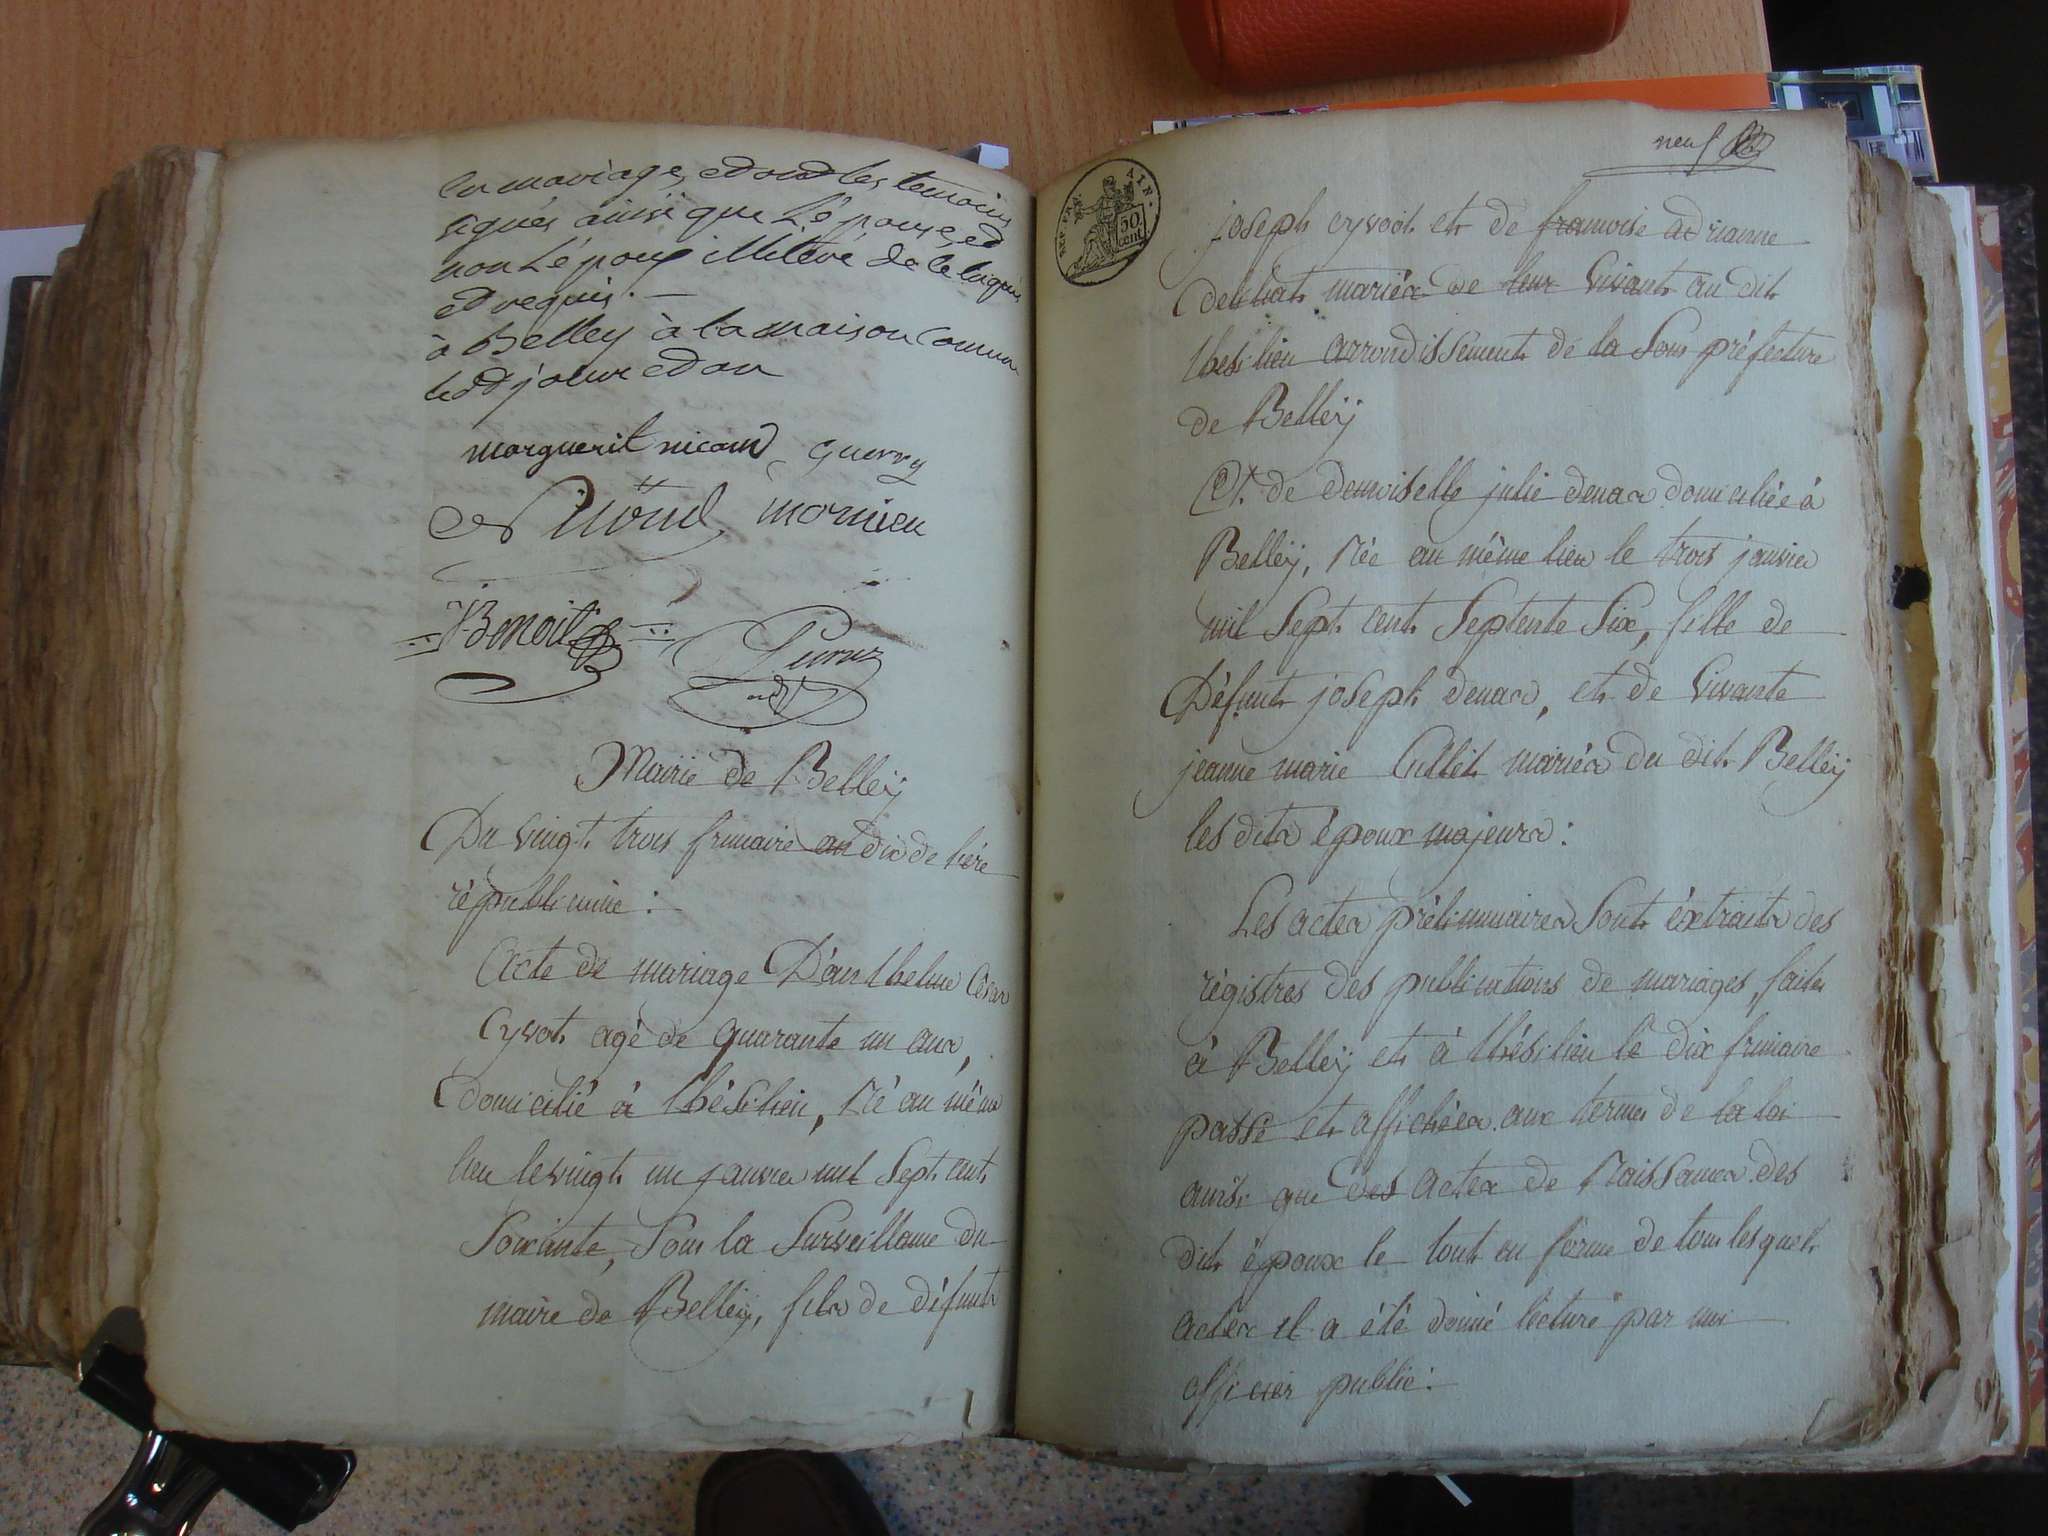 en mariage, et ont les temoins
signés ainsi que L'épouse, et
non L'époux illiteré de ce enquis
et requis. —
à Belley à la maison commune
lesd jour et an
marguerit nicoud guerry
Nicoud mornieu
JBenoit
Mairie de Belleÿ
Du vingt trois frimaire an dix de l'ére
républicaine :
Acte de mariage D'anthelme Cesar
Cyvot agé de quarante un ans,
Domicilié à thésilieu, Né au même
lieu le vingt un janvier mil Sept cent
Soixante, Sous la Surveillance du
maire de Belleÿ, fils de défunt
neuf
AIN.
50
cent.
joseph cyvot et de francoise adrianne
mariés de leur Vivant au dit
thesilieu arrondissement de la Sous préfecture
de Belleÿ
Et de demoiselle julie domiciliée à
Belleÿ, Née au même lieu le trois janvier
mil Sept cent Septente Six, fille de
Défunt joseph et de Vivante
jeanne marie mariés du dit Belleÿ
les dits époux majeurs :
Les actes préliminaires Sont éxtraits des
régistres des publications de mariages, faites
à Belleÿ et à thésilieu le dix frimaire
passé et affichées aux termes de la loi
ainsi que des actes de Naissance des
dits époux le tout en forme de tous lesquels
actes il a été donné lecture par moi
officier public :